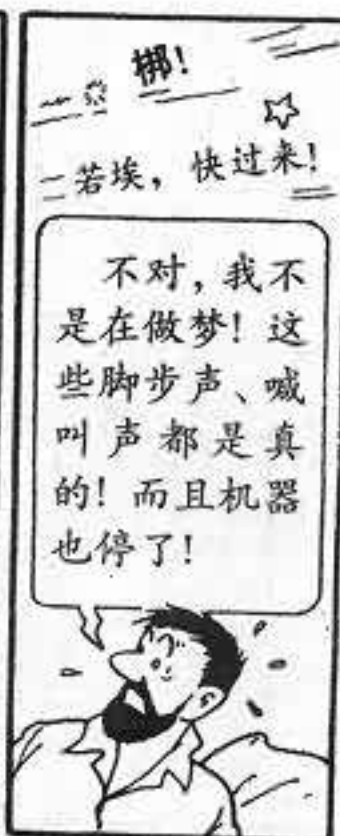 梆!
若埃，快过来!
不对，我不
是在做梦! 这
些脚步声、喊
叫声都是真
的! 而且机器
也停了!